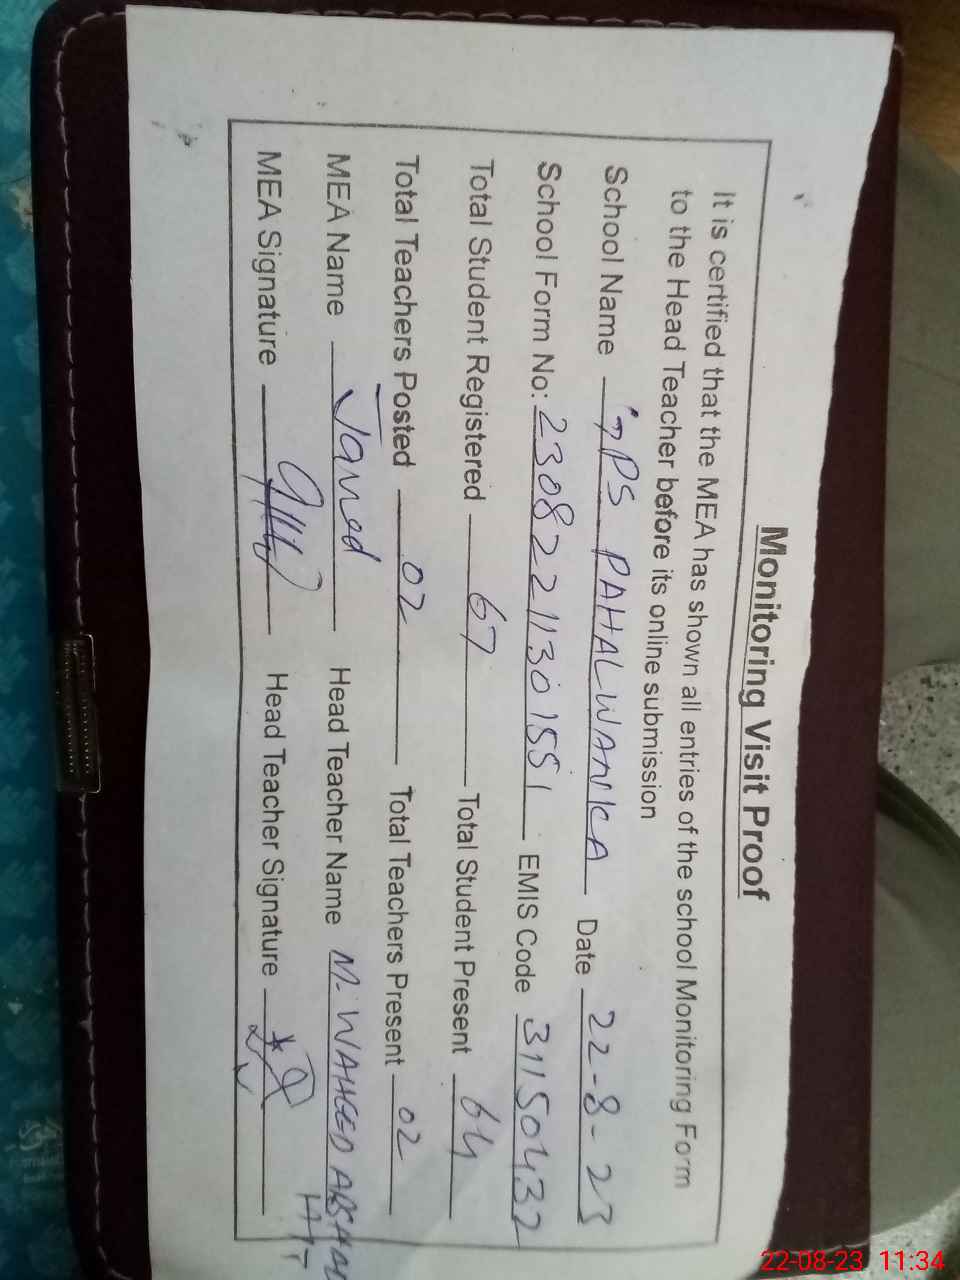 Monitoring Visit Proof
It is certified that the MEA has shown all entries of the school Monitoring Form
to the Head Teacher before its online submission
School Name GPS PAHALWANKA Date 22-8-23
School Form No: 2308221130151 EMIS Code 31150432
Total Student Registered 67 Total Student Present 64
Total Teachers Posted 02 Total Teachers Present 02
MEA Name Javed Head Teacher Name M. WAHEED ARSHAD
HTT
MEA Signature Head Teacher Signature
22-08-23 11:34